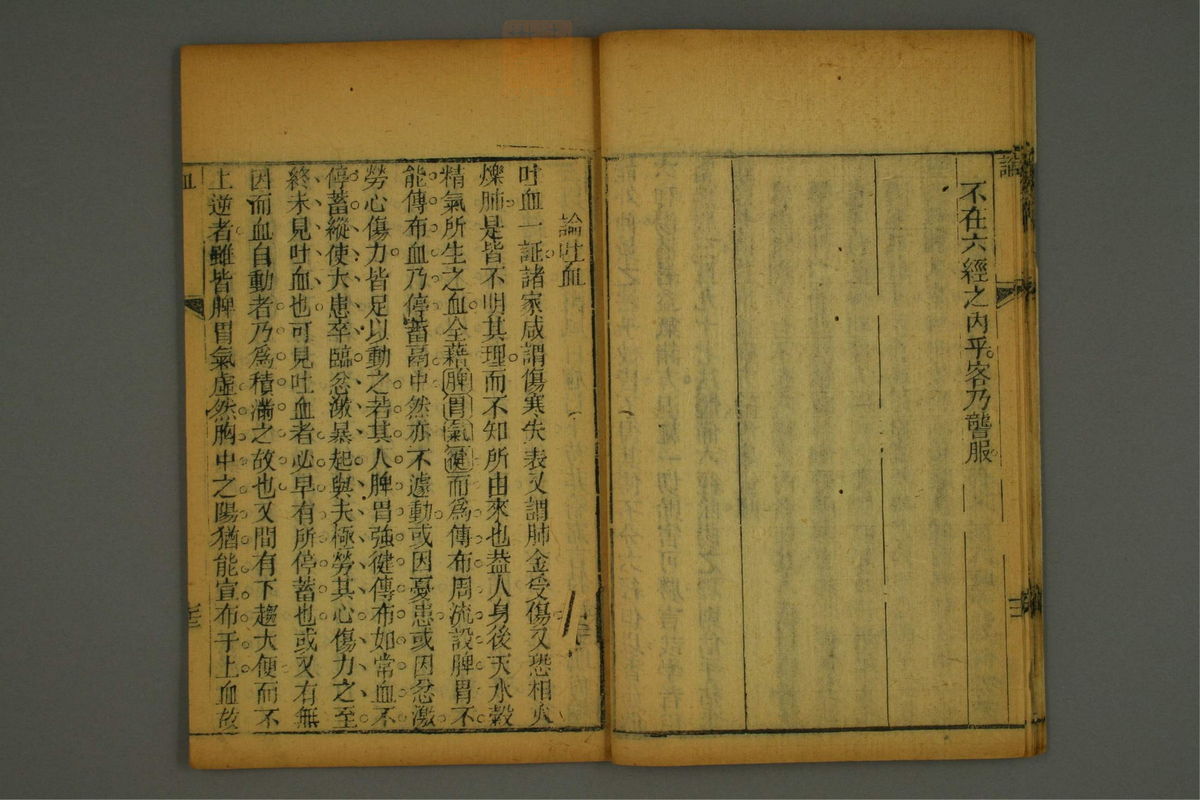 論
不在六經之內乎客乃讋服
論吐血
吐血一証諸家咸謂傷寒失表又謂肺金受傷又恐相火
爍肺是皆不明其理而不知所由來也葢人身後天水穀
精氣所生之血全藉脾胃氣健而為傳布周流設脾胃不
能傳布血乃停蓄鬲中然亦不遽動或因憂患或因忿激
勞心傷力皆足以動之若其人脾胃強健傳布如常血不
停蓄縱使大患卒臨忿激暴起與夫極勞其心傷力之至
終未見吐血也可見吐血者必早有所停蓄也或又有無
因而血自動者乃為積滿之故也又間有下趨大便而不
上逆者雖皆脾胃氣虛然胸中之陽猶能宣布于上血故
血